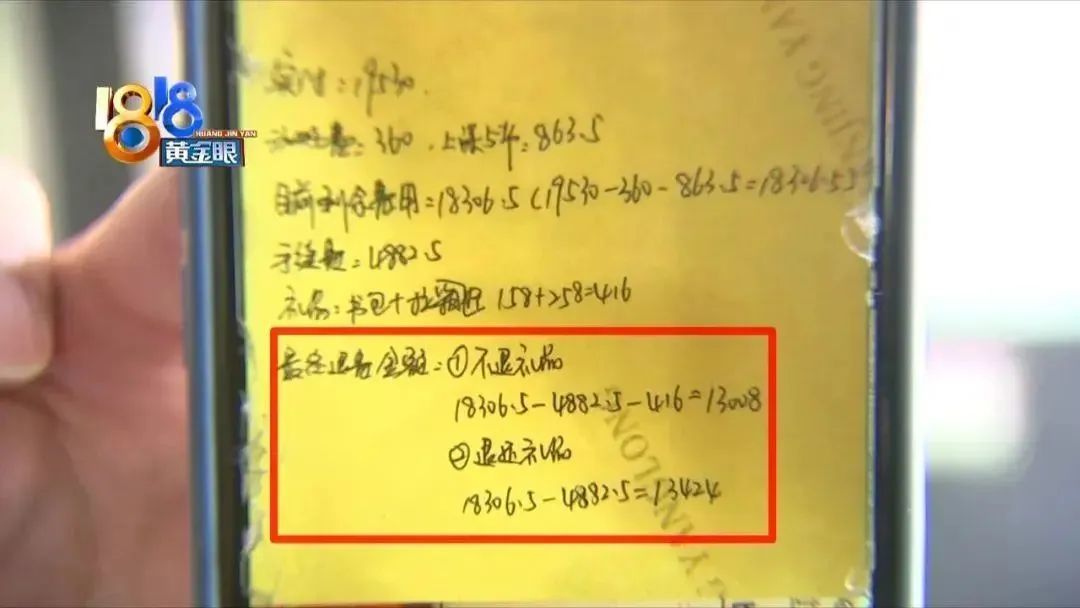 1818
HUANG JIN YAN
黄金眼
实付:19530.
费:360,上课5节:863.5
目前剩余费用=18306.5(19530-360-863.5=18306.5)
手续费=4882.5
礼品:书包+拉 158+258=416
最终退费金额:①不退礼品
18306.5-4882.5-416=13008
②退还礼品
18306.5-4882.5=13424